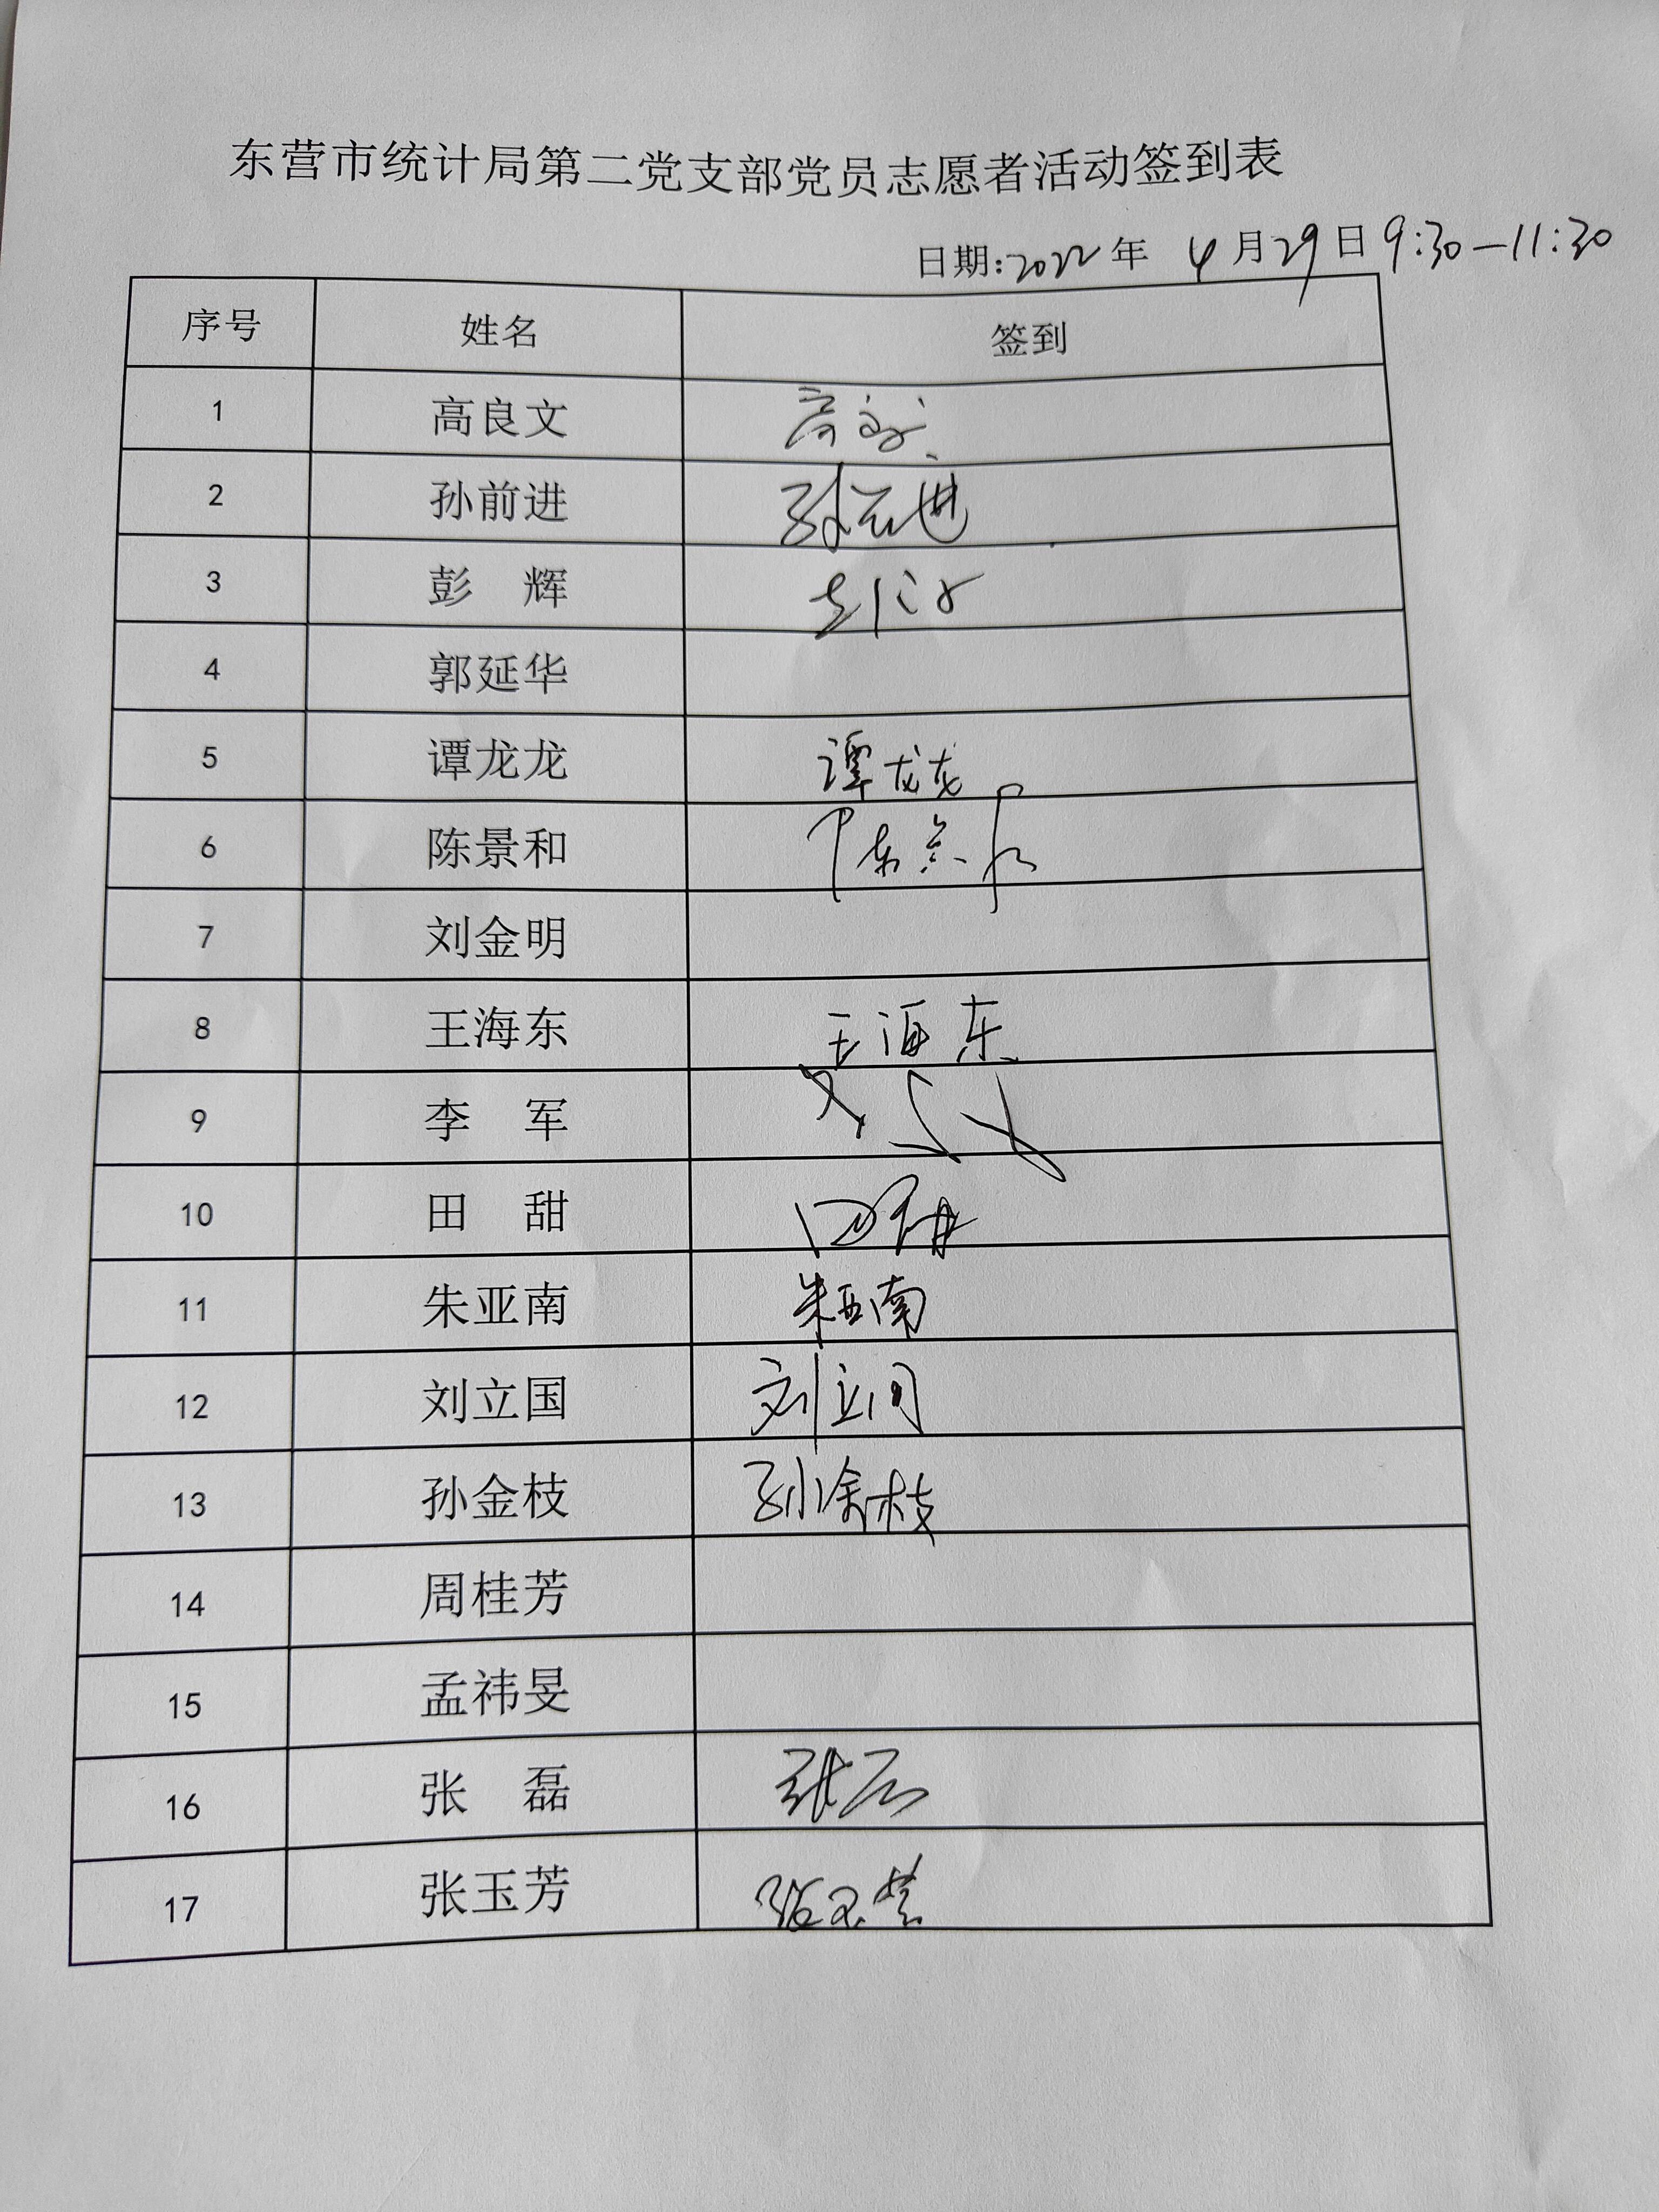 东营市统计局第二党支部党员志愿者活动签到表
日期:2022年 4月29日 9:30—11:30
序号 姓名 签到
1 高良文
2 孙前进 孙前进
3 彭 辉
4 郭延华
5 谭龙龙 谭龙龙
6 陈景和 陈景和
7 刘金明
8 王海东 王海东
9 李 军
10 田 甜 田甜
11 朱亚南 朱亚南
12 刘立国 刘立国
13 孙金枝 孙金枝
14 周桂芳
15 孟祎旻
16 张 磊 张磊
17 张玉芳 张玉芳